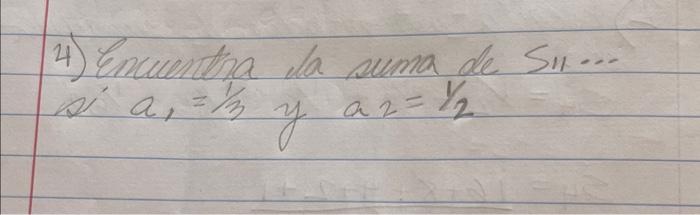 4) Encuentra la suma de S11...
si a1 = 1/3 y a2 = 1/2